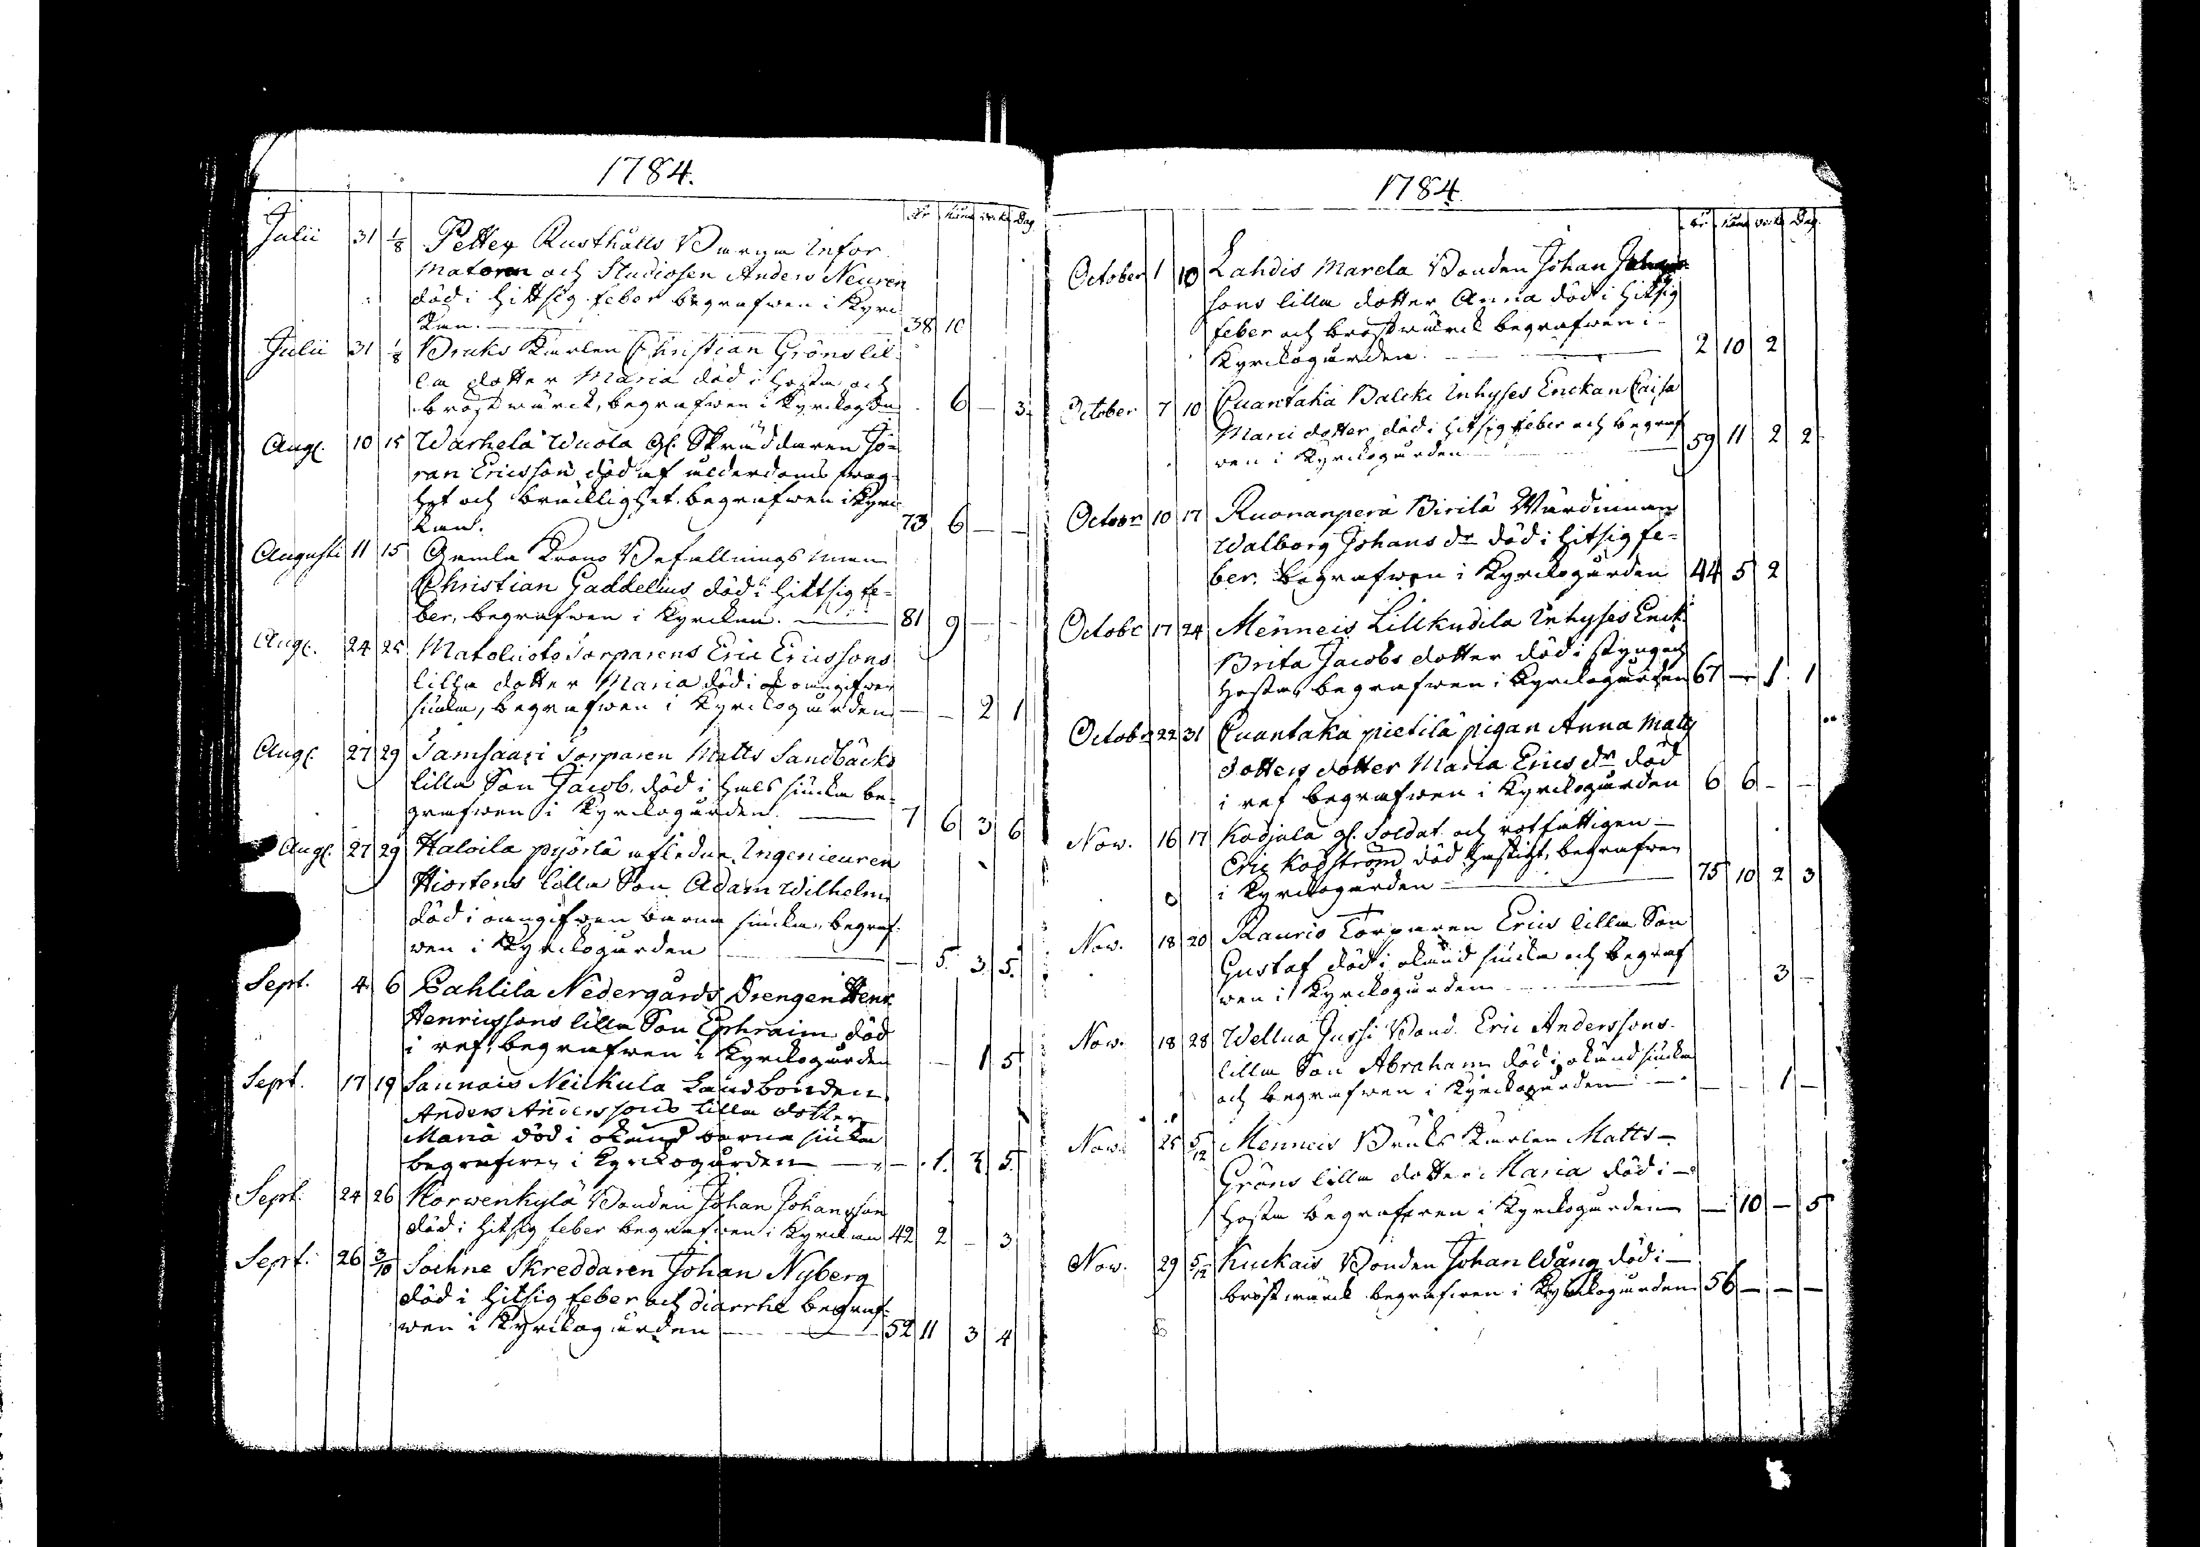 1784.
År Mån: Veck: Dag
Julii 31 1/8 Petter Rusthålls Warma Infor
matoren och Studiosen Anders Neuren
död i hittsig feber begrafwen i Kyrc
kan. 38 10
Julii 31 1/8 Bruks Karlen Christian Gröns lil
la dotter Maria död i hosta och
bröstwärck, begrafwen i Kyrckogården 6 — 3
Aug. 10 15 Warhela Wuola gl. Skräddaren Jö-
ran Ericsson död af ålderdoms swag-
het och bräcklighet begrafwen i Kyrc
kan. 73 6 — —
Augusti 11 15 Gemla Krono Befallningsman
Christian Gaddelius död i hittsig fe-
ber, begrafwen i Kyrckan. 81 9 — —
Aug. 24 25 Matoluoto Torparens Eric Ericssons
lilla dotter Maria död i oangifwen
siuka, begrafwen i Kyrckogården — — 2 1
Aug. 27 29 Tamsaari Torparen Matts Sandbäcks
lilla Son Jacob, död i hals siucka be-
grafwen i Kyrckogården. 7 6 3 6
Aug. 27 29 Haloila pyörlä afledne Ingenieuren
Hiortens lilla Son Adam Wilhelm
död i oangifwen barna siucka, begraf-
wen i Kyrckogården — 5 3 5
Sept. 4 6 Pahlila Nedergårds Drengen Henr.
Henricssons lilla Son Ephraim död
i ref, begrafwen i Kyrckogården — 1 5
Sept. 17 19 Saunais Neickula Landbonden
Anders Anderssons lilla dotter
Maria död i okänd barna siucka
begrafwen i Kyrckogården — 1. 3 5
Sept. 24 26 Korwenkylä Bonden Johan Johansson
död i hitsig feber begrafwen i Kyrckan 42 2 — 3
Sept. 26 3/10 Soehne Skreddaren Johan Nyberg
död i hitsig feber och diarrhe begraf-
wen i Kyrckogården 52 11 3 4
1784.
År Mån: Veck: Dag.
October 1 10 Lahdis Marcla Bonden Johan Johans
sons lilla dotter Anna död i hitsig
feber och bröstwärck begrafwen i
Kyrckogården. 2 10 2
October 7 10 Quantaka Balcke Inhyses Enckan Caisa
Marci dotter, död i hitsig feber och begraf
wen i Kyrckogården 59 11 2 2
Octobr 10 17 Ruonanperä Birilä Wärdinnan
Walborg Johans dr död i hitsig fe-
ber. begrafwen i Kyrckogården 44 5 2
Octobr 17 24 Menneis Lillkudila Inhyses Enck.
Brita Jacobs dotter död i styng och
Hosta begrafwen i Kyrckogården 67 — 1 1
Octobr 22 31 Quantaka pietilä pigan Anna Matts
dotters dotter Maria Erics dr död
i ref begrafwen i Kyrckogården 6 6 — —
Nov. 16 17 Kodjala gl. Soldat och rotfattigen
Eric Kockström död hastigt, begrafwen
i Kyrckogården 75 10 2 3
Nov. 18 20 Kaurio Torparen Erics lilla Son
Gustaf död i okänd siucka och begraf
wen i Kyrckogården 3 —
Nov. 18 28 Wellua Jussi Bond. Eric Anderssons
lilla Son Abraham död i okänd siucka
och begrafwen i Kyrckogården — — 1 —
Nov. 25 5/12 Menneis Bruks Karlen Matts
Gröns lilla dotter Maria död i
Hosta begrafwen i Kyrckogården — 10 — 5
Nov. 29 5/12 Kuckais Bonden Johan Wång död i
bröstwärck begrafwen i Kyrckogården 56 — — —